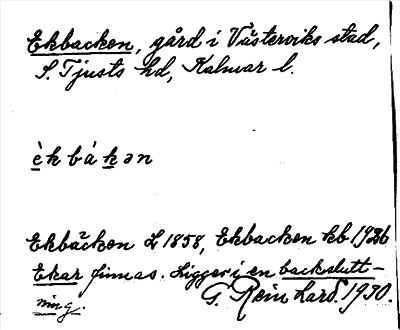 Ekbacken, gård i Västerviks stad,
S. Tjusts hd, Kalmar l.
èkbákən
Ekbäcken L 1858, Ekbacken kb 1926
Ekar finnas. Ligger i en backslutt-
ning. G. Reinhard. 1930.